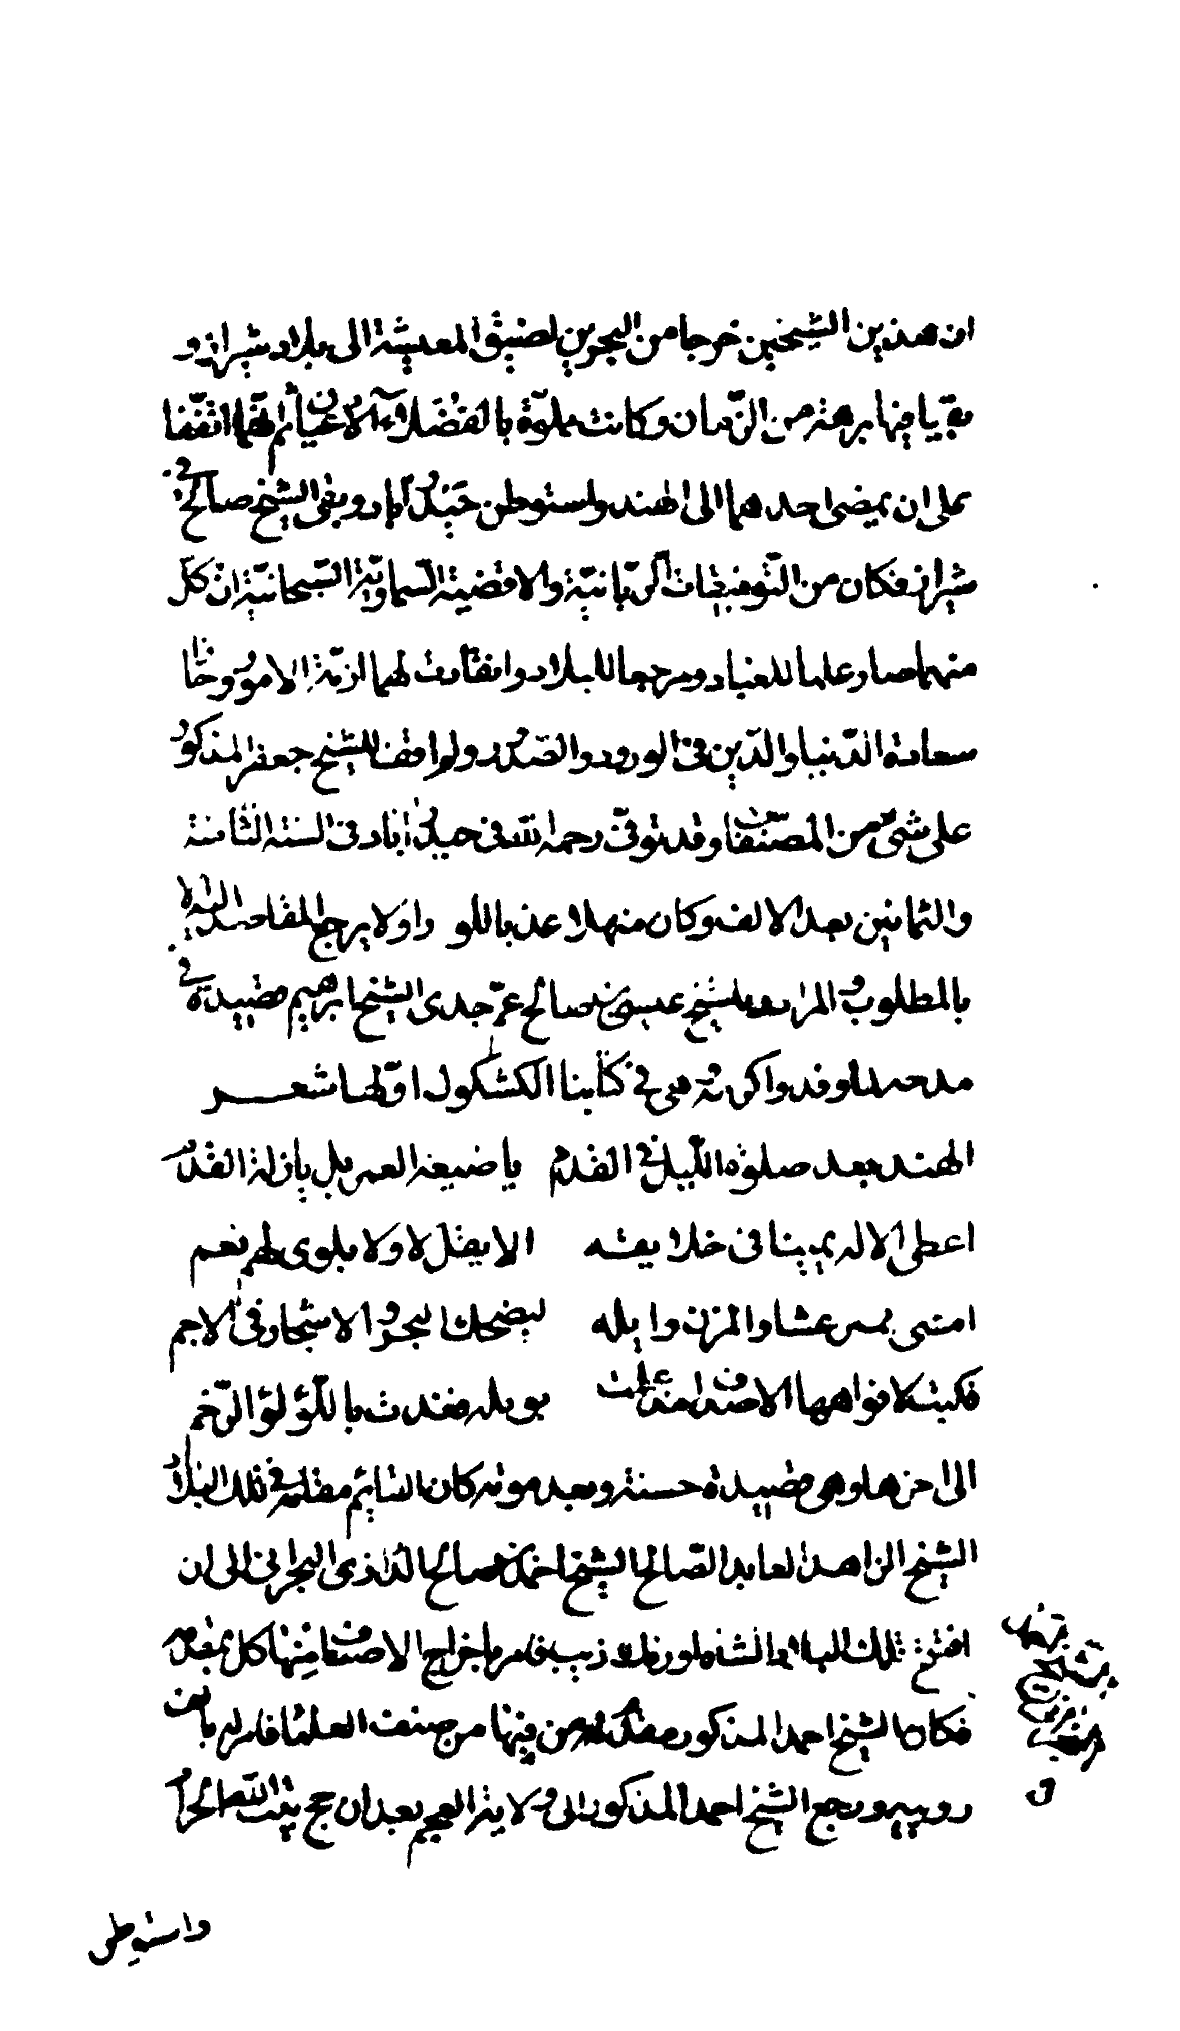 ان هذين الشيخين خرجا من البحرين لضيق المعيشة الى بلاد شيراز و
بقيا فيها برهة من الزمان وكانت مملوة بالفضلاء الاعيان ثم انهما اتفقا
على ان يمضى احدهما الى الهند واستوطن حيدر آباد وبقى الشيخ صالح في
شيراز فكان من التوفيقات الربانية والاقضية السماوية السبحانية ان كل
منهما صار علما للعباد ومرجعا للبلاد وانقادت لهما ازمة الامور وحازا
سعادة الدنيا والدين في الورود والصدور ولم اقف للشيخ جعفر المذكور
على شئ من المصنفات وقد توفى رحمه الله في حيدر اباد في السنة الثامنة
والثمانين بعد الالف وكان منهلا عذبا للوراد ولا يرجع القاصد اليه الا
بالمطلوب والمراد وللشيخ عيسى بن صالح عم جدى الشيخ ابراهيم قصيدة في
مدحه لما وفد واكرمه هى في كتابنا الكشكول اولها شعر
الهند بعد صلوة الليل في القدم يا ضيعة العمر بل يا زلة القدم
اعطى الاله يمينا في خلايقه الا يقل لا ولا يلوى لهم نعم
امسى يمير عشا والمزن وابله ليضحك البحر والاشجار في الاجم
فكبت لافواهها الاصداف مذ علمت بوبله فغدت باللؤلؤ الرخم
الى اخرها وهى قصيدة حسنة وبعد موته كان القايم مقامه في تلك البلاد
الشيخ الزاهد العابد الصالح الشيخ احمد بن صالح الدرازى البحرانى الى ان
افتتح تلك البلاد الشاه اورنك زيب فامر باخراج الاصناف منها كل بمقدم
فكان الشيخ احمد المذكور مقدم من فيها من صنف العلما فامر له بالف
روبيه ورجع الشيخ احمد المذكور الى ولاية العجم بعد ان حج بيت الله الحرام
واستوطن